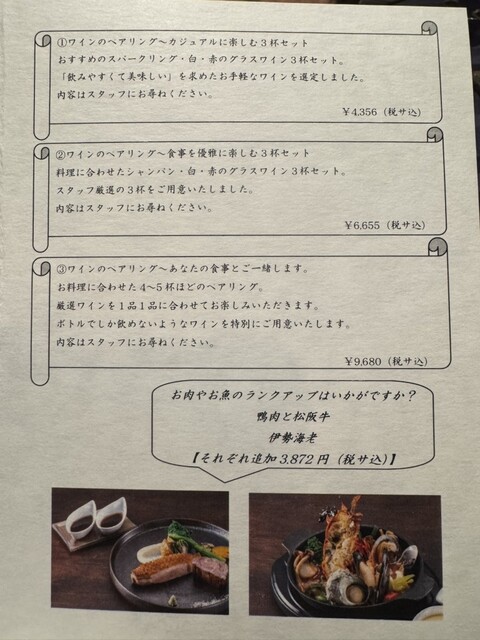 ①ワインのペアリング～カジュアルに楽しむ３杯セット
おすすめのスパークリング・白・赤のグラスワイン３杯セット。
「飲みやすくて美味しい」を求めたお手軽なワインを選定しました。
内容はスタッフにお尋ねください。
￥4,356（税サ込）
②ワインのペアリング～食事を優雅に楽しむ３杯セット
料理に合わせたシャンパン・白・赤のグラスワイン３杯セット。
スタッフ厳選の３杯をご用意いたしました。
内容はスタッフにお尋ねください。
￥6,655（税サ込）
③ワインのペアリング～あなたの食事とご一緒します。
お料理に合わせた４～５杯ほどのペアリング。
厳選ワインを１品１品に合わせてお楽しみいただきます。
ボトルでしか飲めないようなワインを特別にご用意いたします。
内容はスタッフにお尋ねください。
￥9,680（税サ込）
お肉やお魚のランクアップはいかがですか？
鴨肉と松阪牛
伊勢海老
【それぞれ追加 3,872 円（税サ込）】